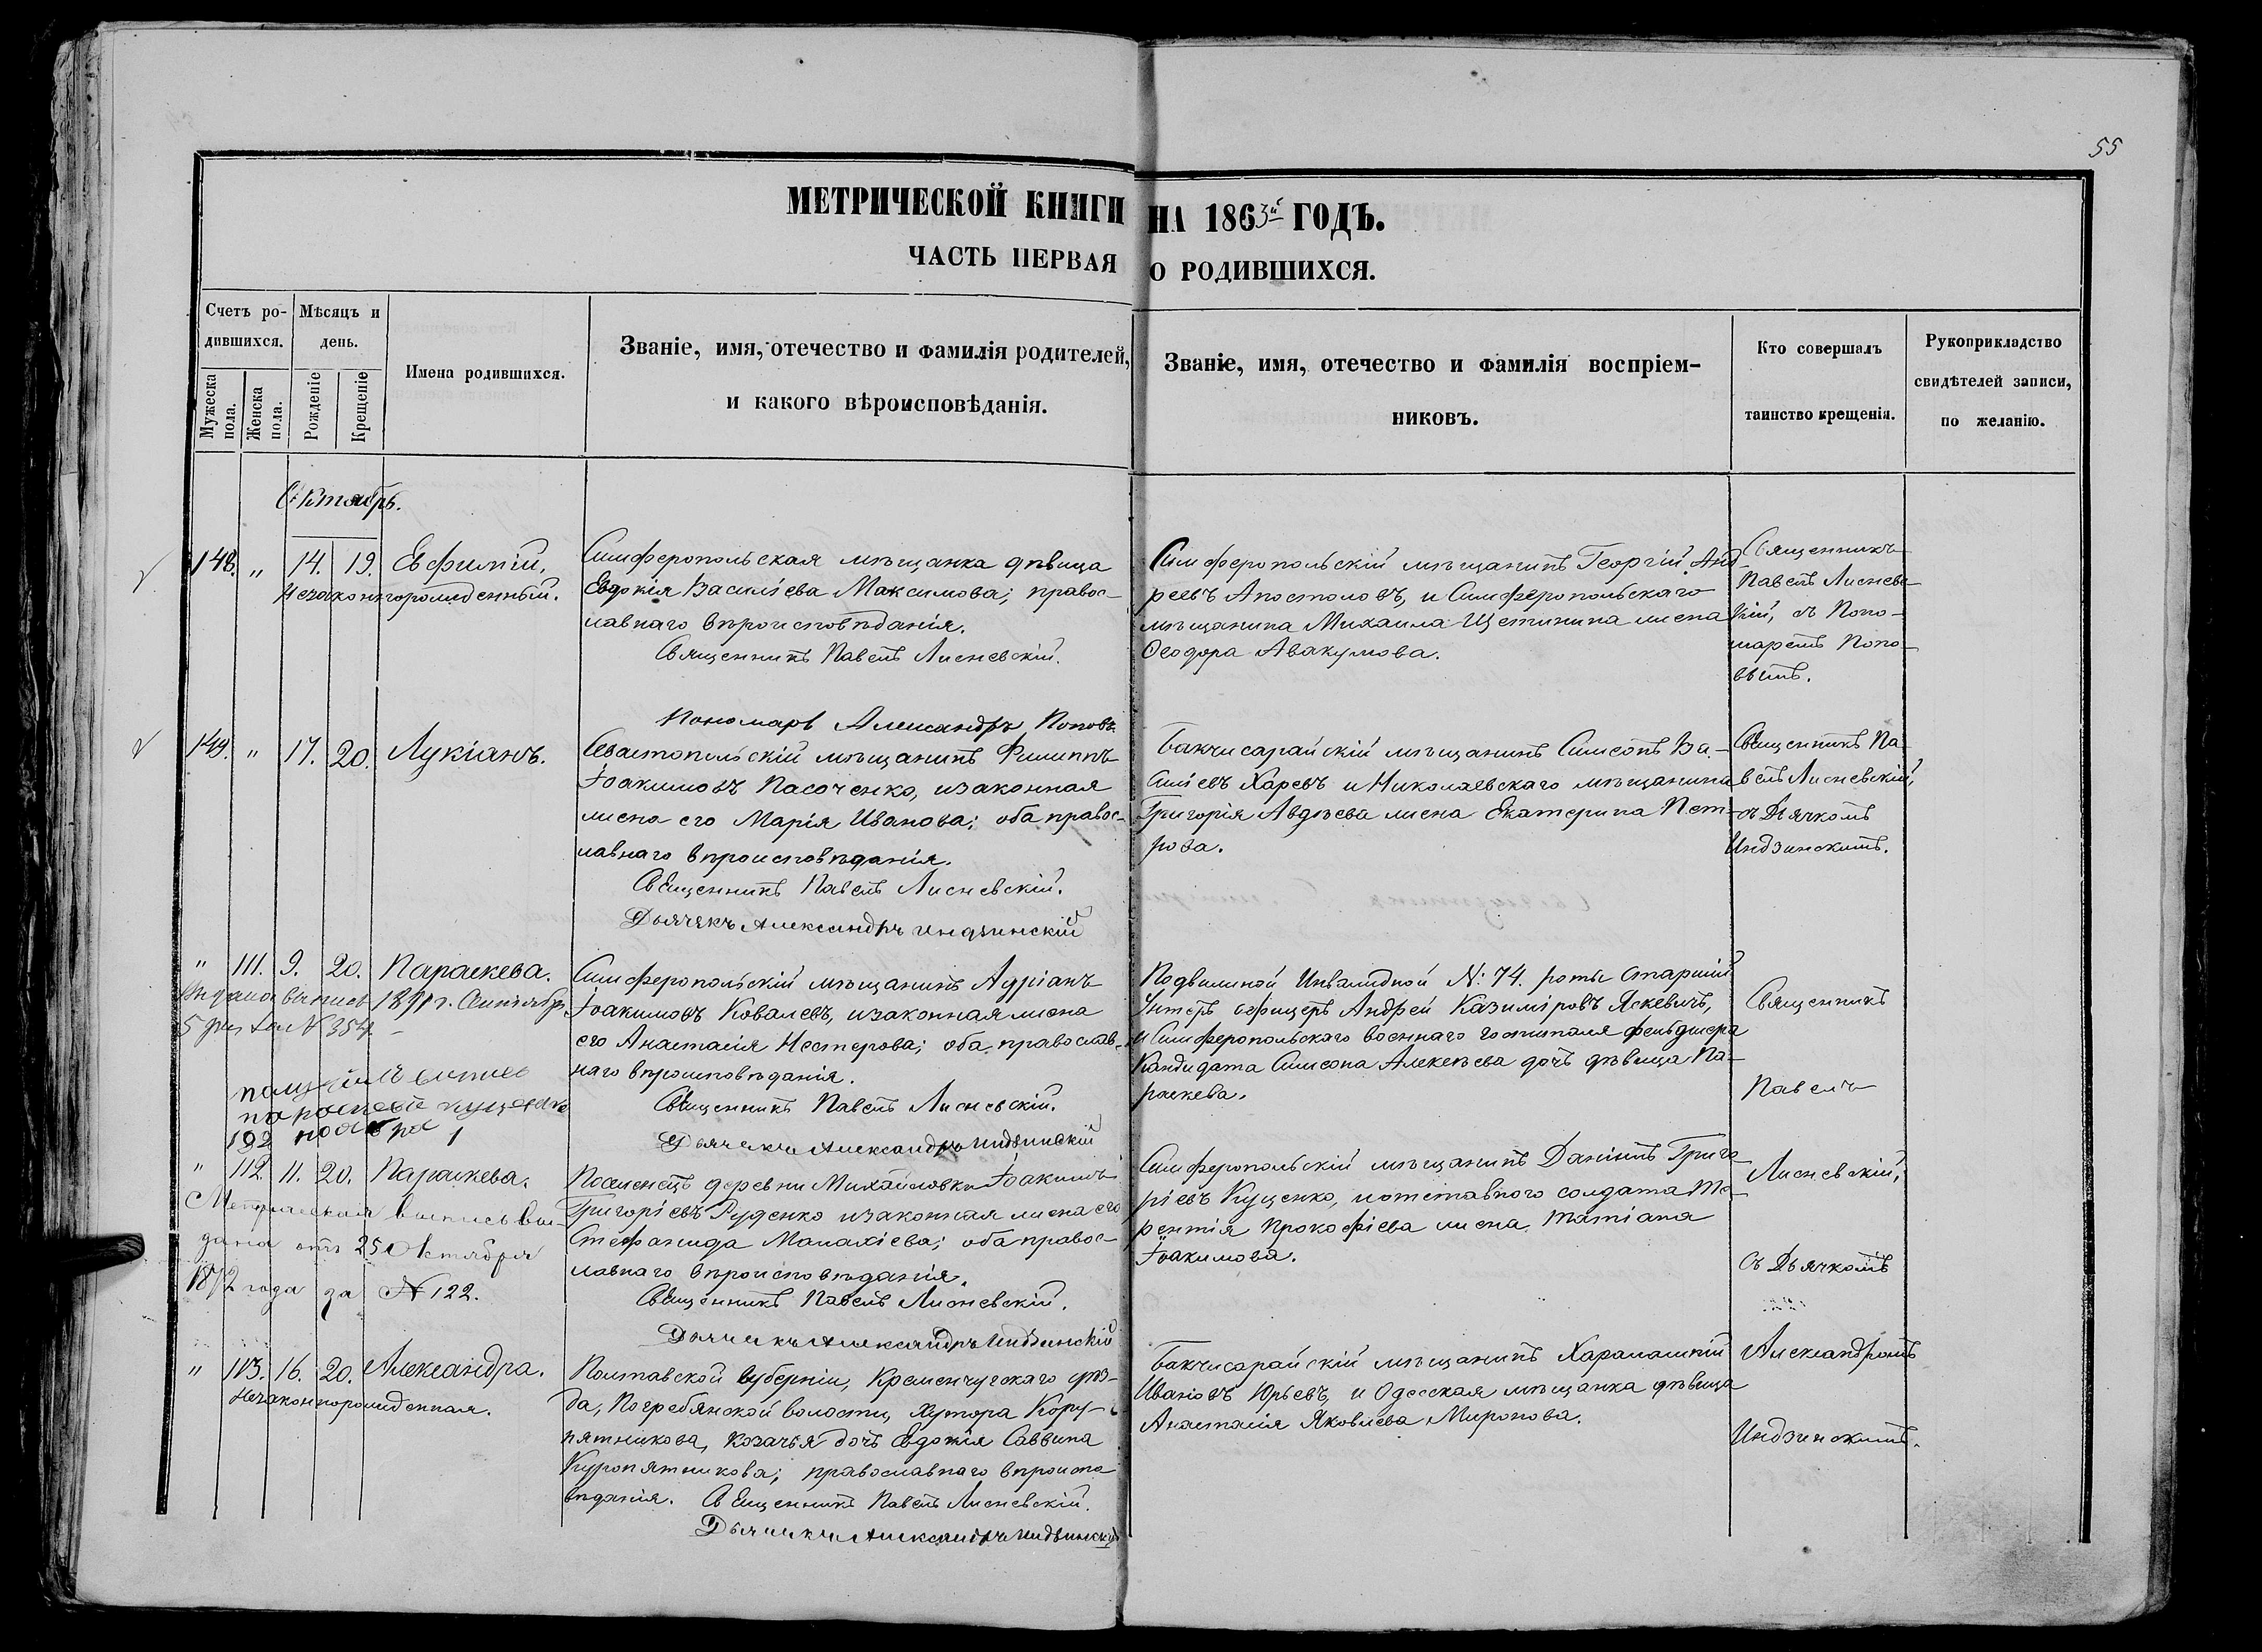 55
МЕТРИЧЕСКОЙ КНИГИ НА 1863й ГОДЪ.
ЧАСТЬ ПЕРВАЯ О РОДИВШИХСЯ.
Счетъ ро-
дившихся.
Мужеска пола.
Женска пола.
Мѣсяцъ и
день.
Рожденіе
Крещеніе
Имена родившихся.
Званіе, имя, отечество и фамилія родителей,
и какого вѣроисповѣданія.
Званіе, имя, отечество и фамилія воспріем-
никовъ.
Кто совершалъ
таинство крещенія.
Рукоприкладство
свидѣтелей записи,
по желанію.
Октябрь.
148. " 14. 19. Евфимій,
Незаконнорожденный.
Симферопольская мѣщанка дѣвица
Евдокія Васильева Максимова; правос-
лавнаго вѣроисповѣданія.
Священникъ Павелъ Лисневскій.
Пономарь Александръ Поповъ
Симферопольскій мѣщанинъ Георгій Анд-
реевъ Апостоловъ, и Симферопольскаго
мѣщанина Михаила Щетинина жена
Ѳеодора Авакумова.
Священникъ
Павелъ Лисневс-
кій, съ Поно-
маремъ Попо-
вымъ.
149. " 17. 20. Лукіанъ.
Севастопольскій мѣщанинъ Филиппъ
Іоакимовъ Пасоченко, изаконная
жена его Марія Иванова; оба правос-
лавнаго вѣроисповѣданія.
Священникъ Павелъ Лисневскій.
Дьячекъ Александръ Индзинскій
Бакчисарайскій мѣщанинъ Симеонъ Ва-
сильевъ Харевъ и Николаевскаго мѣщанина
Григорія Авдѣева жена Екатерина Пет-
рова.
Священникъ Па-
велъ Лисневскій,
съ Дьячкомъ
Индзинскимъ.
" 111. 9. 20. Параскева.
Выдана выпись 1891 г. Сентября
5 дня за № 354
Симферопольскій мѣщанинъ Адріанъ
Іоакимовъ Ковалевъ, изаконная жена
его Анастасія Нестерова; оба православ-
наго вѣроисповѣданія.
Священникъ Павелъ Лисневскій.
Дьячекъ Александръ Индзинскій
Подвижной Инвалидной №: 74. роты старшій
Унтеръ офицеръ Андрей Казиміровъ Яскевичъ,
и Симферопольскаго военнаго госпиталя фельдшера
Кандидата Симеона Алексѣева дочь дѣвица Па-
раскева.
Священникъ
Павелъ
" 112. 11. 20. Параскева.
Метрическая выпись вы-
дана отъ 25 Октября
1872 года за № 122.
Поселенецъ деревни Михайловки Іоакимъ
Григорьевъ Руденко изаконная жена его
Стефанида Малахіева; оба правос-
лавнаго вѣроисповѣданія.
Священникъ Павелъ Лисневскій.
Дьячекъ Александръ Индзинскій
Симферопольскій мѣщанинъ Даніилъ Григо-
ріевъ Куценко, и отставного солдата Те-
рентія Прокофіева жена Татіана
Іоакимова.
Лисневскій,
съ Дьячкомъ
" 113. 16. 20. Александра.
Незаконнорожденная.
Полтавской Губерніи, Кременчугскаго уѣз-
да, Погребянской волости, Хутора Куро-
пятникова, козачья дочь Евдокія Саввина
Куропятникова; православнаго вѣроиспо-
вѣданія. Священникъ Павелъ Лисневскій.
Дьячекъ Александръ Индзинскій
Бакчисарайскій мѣщанинъ Харалампій
Ивановъ Юрьевъ, и Одесская мѣщанка дѣвица
Анастасія Яковлева Миронова.
Александромъ
Индзинскимъ.